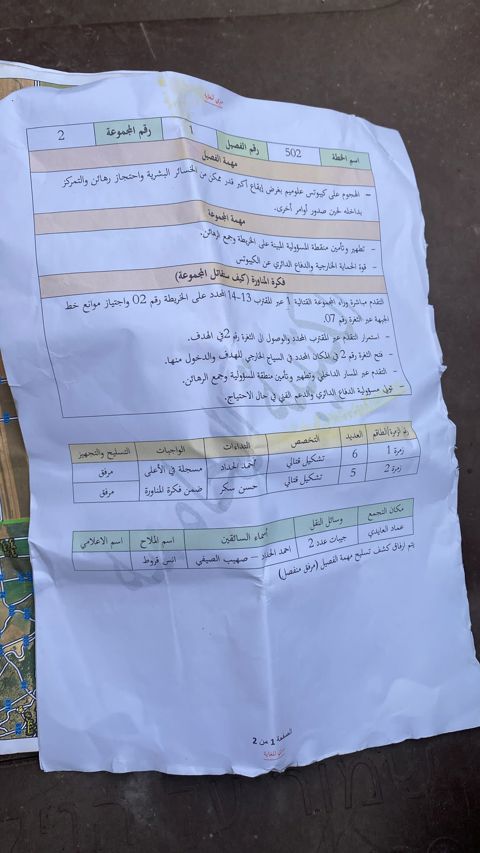 سري للغاية
اسم الخطة 502 رقم الفصيل 1 رقم المجموعة 2
مهمة الفصيل
- الهجوم على كيبوتس علوميم بغرض إيقاع أكبر قدر ممكن من الخسائر البشرية واحتجاز رهائن والتمركز
بداخله لحين صدور أوامر أخرى.
مهمة المجموعة
- تطهير وتأمين منطقة المسؤولية المبينة على الخريطة وجمع الرهائن.
- قوة الحماية الخارجية والدفاع الدائري عن الكيبوتس
فكرة المناورة (كيف ستقاتل المجموعة)
التقدم مباشرة وراء المجموعة القتالية 1 عبر المقترب 13-14 المحدد على الخريطة رقم 02 واجتياز موانع خط
الجبهة عبر الثغرة رقم 07.
- استمرار التقدم عبر المقترب المحدد والوصول الى الثغرة رقم 2 في الهدف.
- فتح الثغرة رقم 2 في المكان المحدد في السياج الخارجي للهدف والدخول منها.
- التقدم عبر المسار الداخلي وتطهير وتأمين منطقة المسؤولية وجمع الرهائن.
- تولي مسؤولية الدفاع الدائري والدعم الفني في حال الاحتياج.
رقم الزمرة/الطاقم العديد التخصص النداءات الواجبات التسليح والتجهيز
زمرة 1 6 تشكيل قتالي أحمد الحداد مسجلة في الأعلى مرفق
زمرة 2 5 تشكيل قتالي حسن سكر ضمن فكرة المناورة مرفق
مكان التجمع وسائل النقل أسماء السائقين اسم الملاح اسم الاعلامي
عماد العايدي جيبات عدد 2 احمد الحداد – صهيب الصيفي انس قزوط
يتم ارفاق كشف تسليح مهمة الفصيل (مرفق منفصل)
الصفحة 1 من 2
سري للغاية